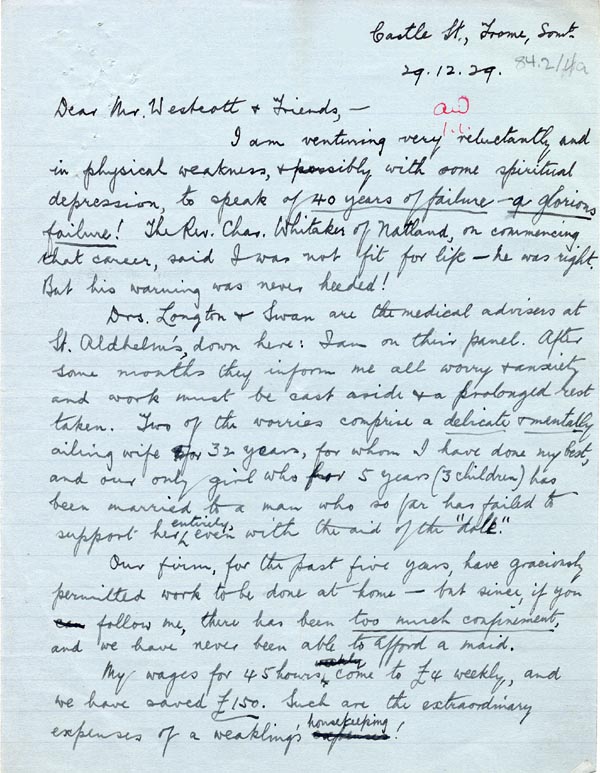 Castle St., Frome, Somt.
29.12.29. 84.2/4a
Dear Mr. Westcott & Friends,—
I am venturing very reluctantly and
in physical weakness, & possibly with some spiritual
depression, to speak of 40 years of failure — a glorious
failure! The Rev. Chas. Whitaker of Natland, on commencing
that career, said I was not fit for life — he was right.
But his warning was never heeded!
Drs. Longton & Swan are the medical advisers at
St. Aldhelm's, down here: I am on their panel. After
some months they inform me all worry & anxiety
and work must be cast aside & a prolonged rest
taken. Two of the worries comprise a delicate & mentally
ailing wife for 32 years, for whom I have done my best,
and our only girl who for 5 years (3 children) has
been married to a man who so far has failed to
support her entirely, even with the aid of the "dole."
Our firm, for the past five years, have graciously
permitted work to be done at home — but since, if you
can follow me, there has been too much confinement,
and we have never been able to afford a maid.
My wages for 45 hours weekly come to £4 weekly, and
we have saved £150. Such are the extraordinary
expenses of a weakling's housekeeping!